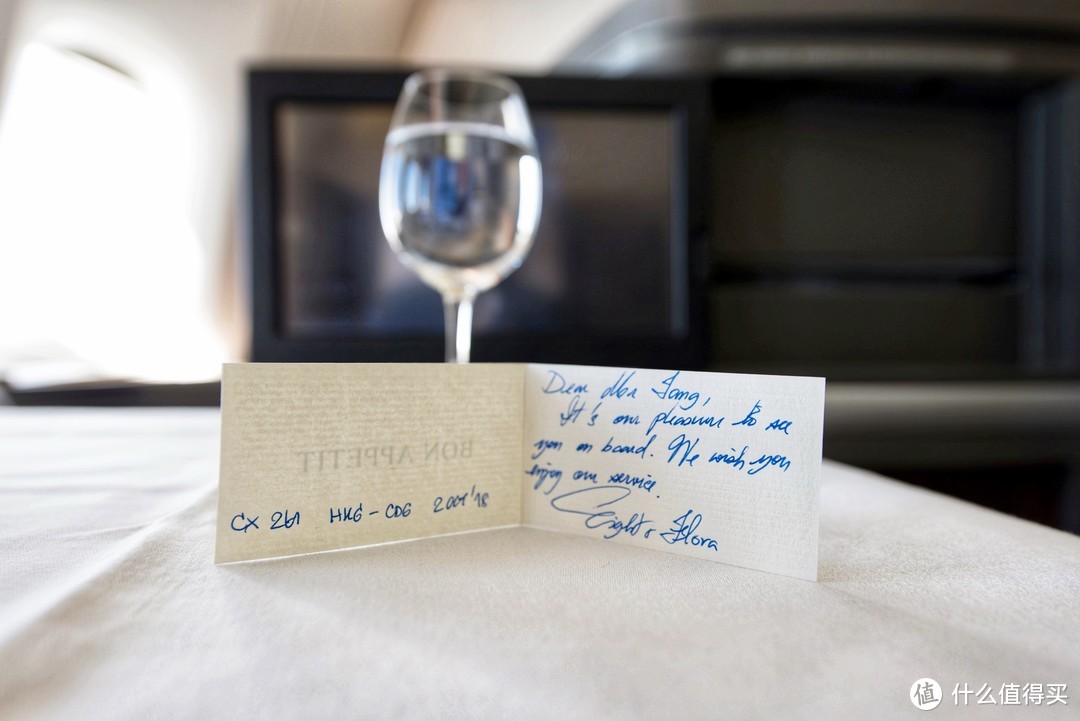 BON APPETIT
CX 261 HKG-CDG 2001'18
Dear Mr Fang,
It's our pleasure to see
you on board. We wish you
enjoy our service.
Eight & Flora
值 什么值得买